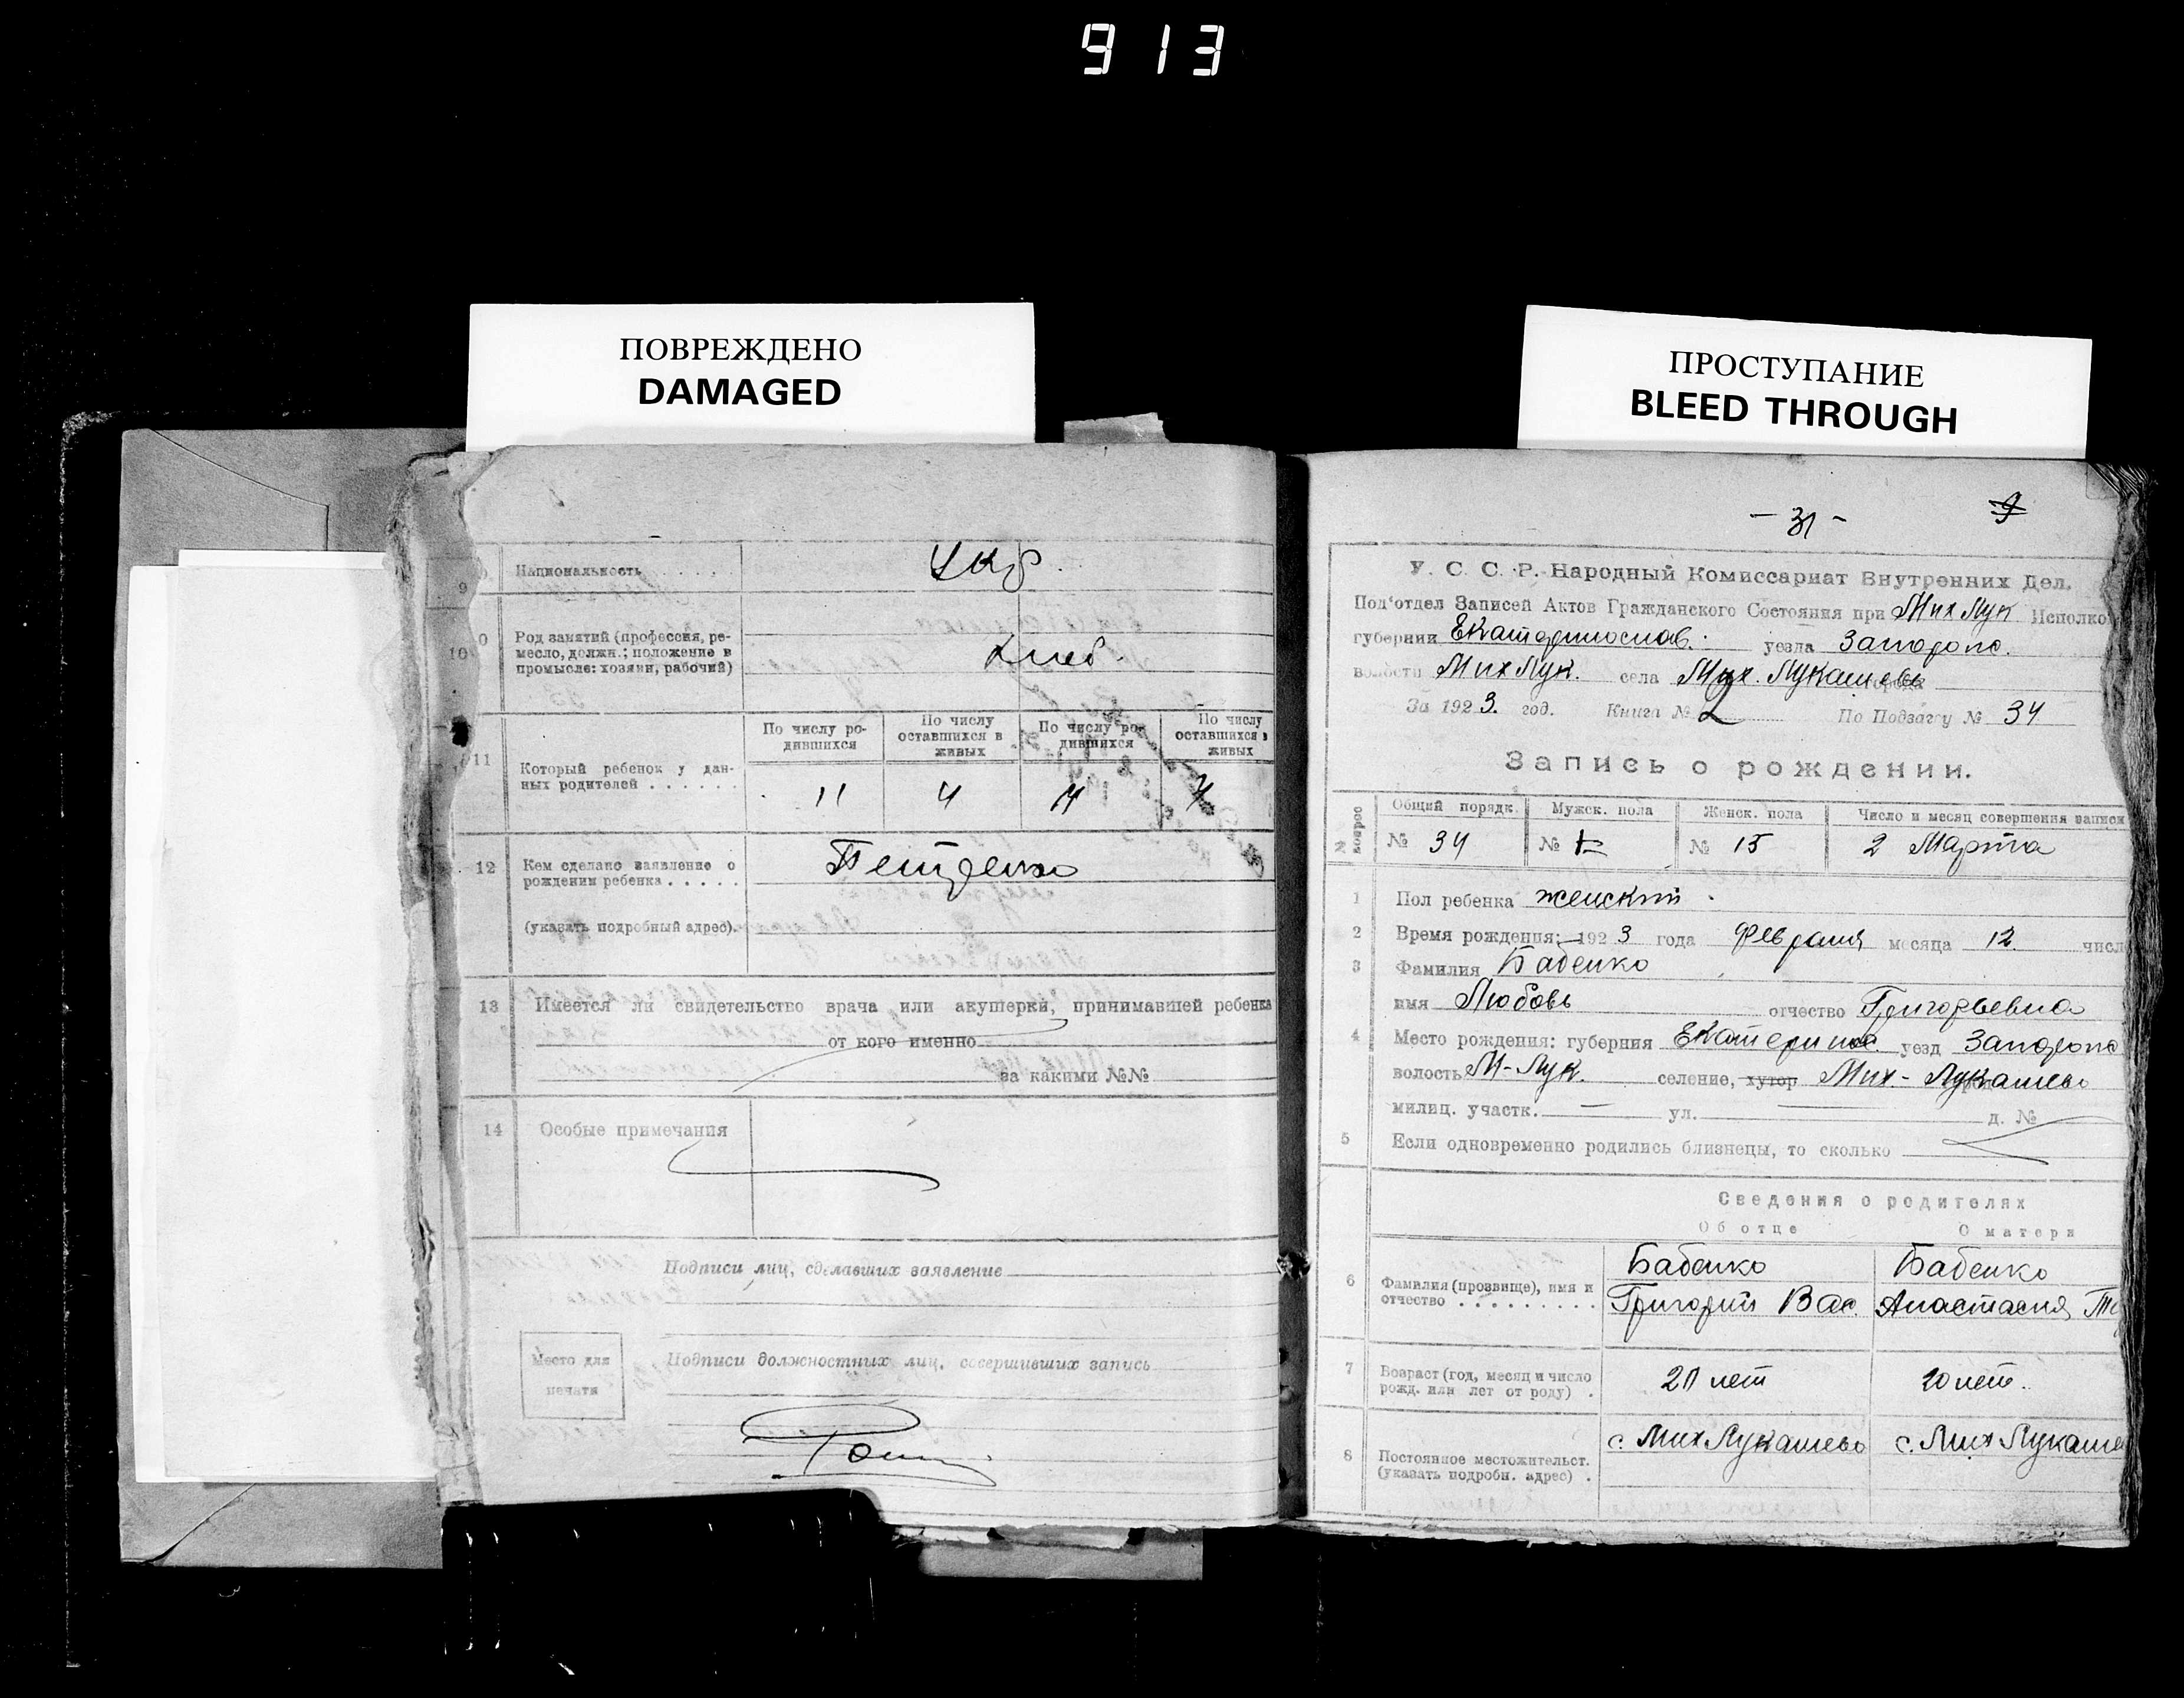 913
ПОВРЕЖДЕНО
DAMAGED
ПРОСТУПАНИЕ
BLEED THROUGH
9 Национальность . . . . Укр.
10 Род занятий (профессия, ре-
месло, должн.; положение в
промысле: хозяин, рабочий) Хлеб.
11 Который ребенок у дан-
ных родителей . . . . . .
По числу ро-
дившихся
По числу
оставшихся в
живых
По числу ро-
дившихся
По числу
оставшихся в
живых
11 4
12 Кем сделано заявление о
рождении ребенка . . . . .
(указать подробный адрес).
13 Имеется ли свидетельство врача или акушерки, принимавшей ребенка
от кого именно
за какими №№
14 Особые примечания
Подписи лиц, сделавших заявление
Место для
печати
Подписи должностных лиц, совершивших запись
- 31 -
У. С. С. Р. Народный Комиссариат Внутренних Дел.
Под'отдел Записей Актов Гражданского Состояния при Мих Лук Исполко
губернии Екатеринослав. уезда Запорож.
волости Мих Лук. села Мих. Лукашево
За 1923. год. Книга № 2 По Подзагсу № 34
Запись о рождении.
№ вопрос Общий порядк. Мужск. пола Женск. пола Число и месяц совершения записи
№ 34 № № 15 2 Марта
1 Пол ребенка женский .
2 Время рождения: 1923 года Февраля месяца 12. число
3 Фамилия Бабенко
имя Любовь отчество Григорьевна
4 Место рождения: губерния Екатеринос. уезд Запорож
волость М-Лук. селение, хутор Мих.- Лукашево
милиц. участк. — ул. — д. №
5 Если одновременно родились близнецы, то сколько
Сведения о родителях
Об отце О матери
6 Фамилия (прозвище), имя и
отчество . . . . . . . . .
Бабенко
Григорий Вас.
Бабенко
Анастасия
7 Возраст (год, месяц и число
рожд. или лет от роду) .
лет 20 лет.
8 Постоянное местожительст.
(указать подробн. адрес) .
с. Мих Лукашево с. Мих Лукаше